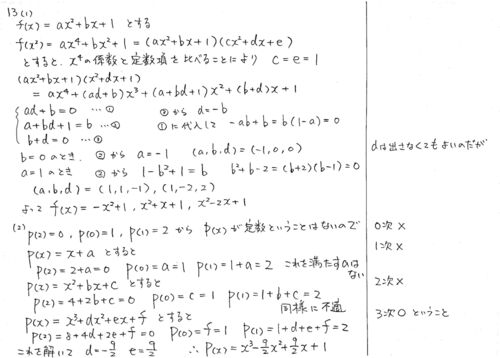 13 (1)
f(x) = ax²+bx+1 とする
f(x²) = ax⁴+bx²+1 = (ax²+bx+1)(cx²+dx+e)
とすると、x⁴の係数と定数項を比べることにより c = e = 1
(ax²+bx+1)(x²+dx+1)
= ax⁴+(ad+b)x³+(a+bd+1)x²+(b+d)x+1
ad+b=0 …① ③から d=-b
a+bd+1=b …② ①に代入して -ab+b=b(1-a)=0
b+d=0 …③
b=0のとき、②から a=-1 (a,b,d)=(-1,0,0) dは出さなくてもよいのだが
a=1のとき ②から 1-b²+1=b b²+b-2=(b+2)(b-1)=0
(a,b,d)=(1,1,-1),(1,-2,2)
よって f(x)=-x²+1, x²+x+1, x²-2x+1
(2) p(2)=0, p(0)=1, p(1)=2 から p(x)が定数ということはないので 0次×
p(x)=x+a とすると 1次×
p(2)=2+a=0 p(0)=a=1 p(1)=1+a=2 これを満たすaはない
p(x)=x²+bx+c とすると 2次×
p(2)=4+2b+c=0 p(0)=c=1 p(1)=1+b+c=2 同様に不適
p(x)=x³+dx²+ex+f とすると 3次○ ということ
p(2)=8+4d+2e+f=0 p(0)=f=1 p(1)=1+d+e+f=2
これを解いて d=-9/2 e=9/2 ∴ p(x)=x³-9/2x²+9/2x+1